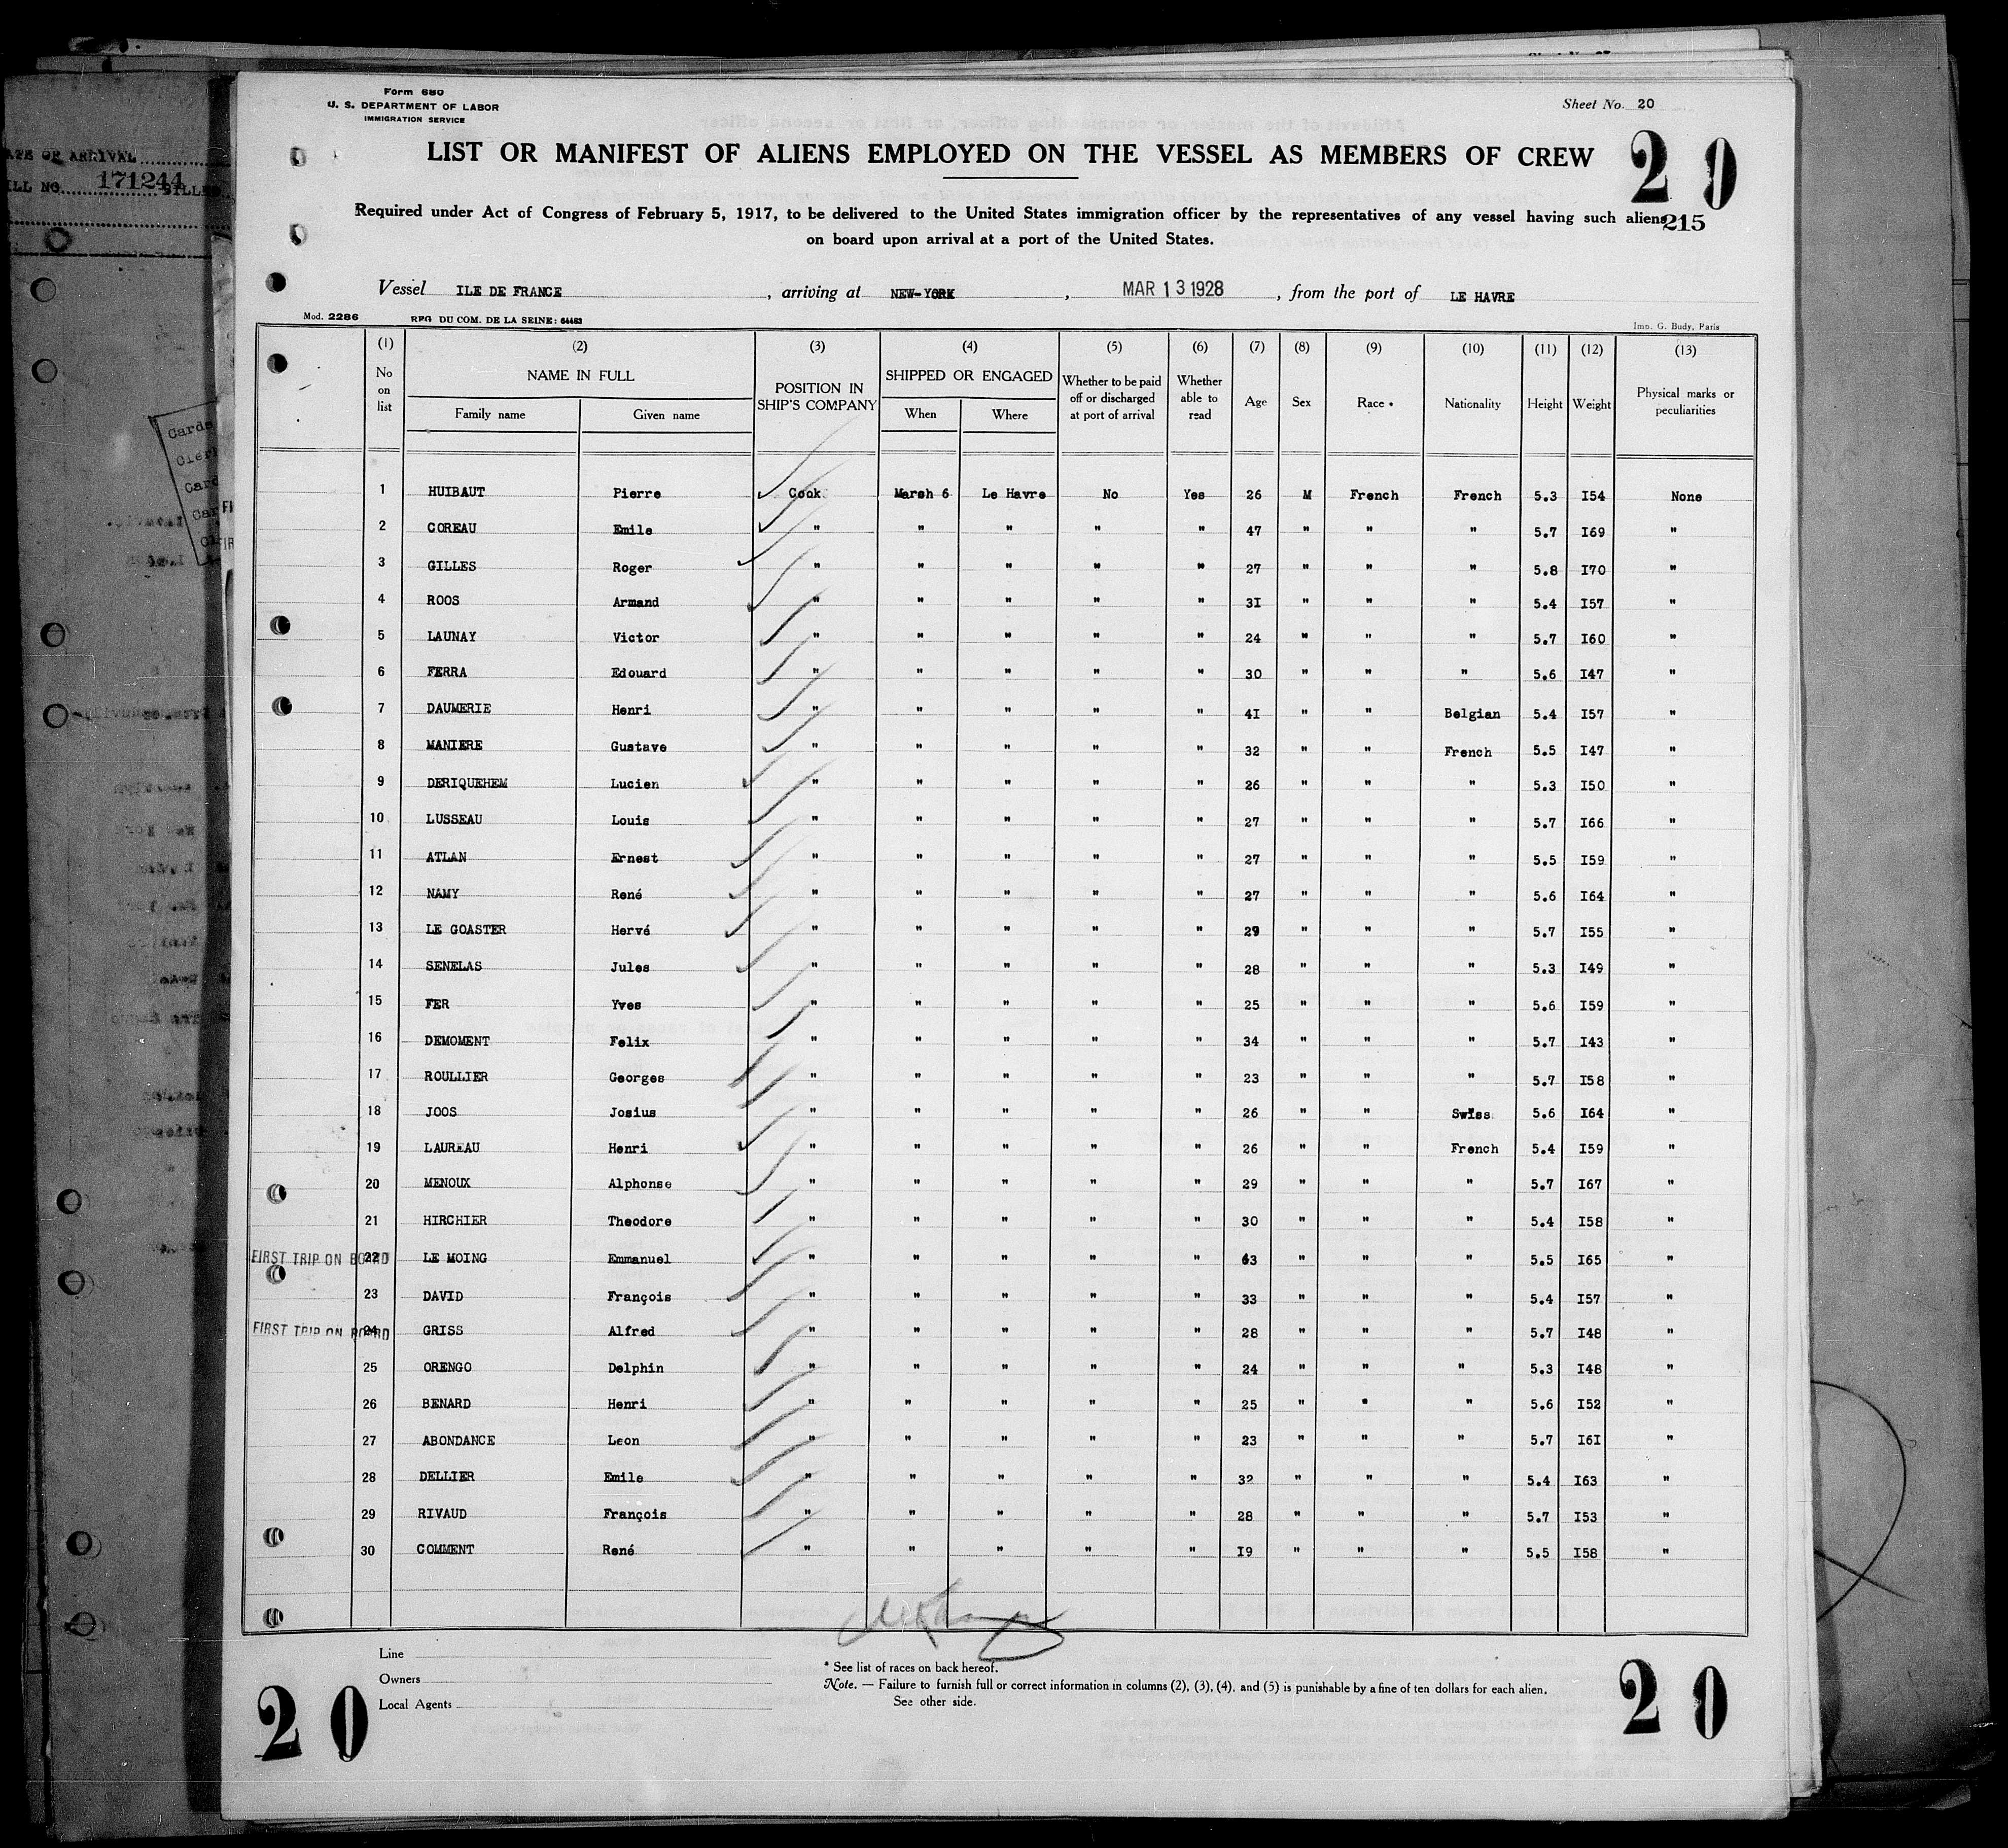 Form 680
U. S. DEPARTMENT OF LABOR
IMMIGRATION SERVICE
Sheet No. 20
LIST OR MANIFEST OF ALIENS EMPLOYED ON THE VESSEL AS MEMBERS OF CREW
20
Required under Act of Congress of February 5, 1917, to be delivered to the United States immigration officer by the representatives of any vessel having such aliens
215
on board upon arrival at a port of the United States.
Vessel ILE DE FRANCE, arriving at NEW-YORK, MAR 13 1928, from the port of LE HAVRE
Mod. 2286 REG. DU COM. DE LA SEINE: 64483 Imp. G. Budy, Paris
(1) (2) (3) (4) (5) (6) (7) (8) (9) (10) (11) (12) (13)
No on list NAME IN FULL Family name Given name POSITION IN SHIP'S COMPANY SHIPPED OR ENGAGED When Where Whether to be paid off or discharged at port of arrival Whether able to read Age Sex Race * Nationality Height Weight Physical marks or peculiarities
1 HUIBAUT Pierre Cook Marsh 6 Le Havre No Yes 26 M French French 5.3 I54 None
2 COREAU Emile " " " " " 47 " " " 5.7 I69 "
3 GILLES Roger " " " " " 27 " " " 5.8 I70 "
4 ROOS Armand " " " " " 3I " " " 5.4 I57 "
5 LAUNAY Victor " " " " " 24 " " " 5.7 I60 "
6 FERRA Edouard " " " " " 30 " " " 5.6 I47 "
7 DAUMERIE Henri " " " " " 4I " " Belgian 5.4 I57 "
8 MANIERE Gustave " " " " " 32 " " French 5.5 I47 "
9 DERIQUEHEM Lucien " " " " " 26 " " " 5.3 I50 "
10 LUSSEAU Louis " " " " " 27 " " " 5.7 I66 "
11 ATLAN Ernest " " " " " 27 " " " 5.5 I59 "
12 NAMY René " " " " " 27 " " " 5.6 I64 "
13 LE GOASTER Hervé " " " " " 29 " " " 5.7 I55 "
14 SENELAS Jules " " " " " 28 " " " 5.3 I49 "
15 FER Yves " " " " " 25 " " " 5.6 I59 "
16 DEMOMENT Felix " " " " " 34 " " " 5.7 I43 "
17 ROULLIER Georges " " " " " 23 " " " 5.7 I58 "
18 JOOS Josius " " " " " 26 " " Swiss 5.6 I64 "
19 LAUREAU Henri " " " " " 26 " " French 5.4 I59 "
20 MENOUX Alphonse " " " " " 29 " " " 5.7 I67 "
21 HIRCHIER Theodore " " " " " 30 " " " 5.4 I58 "
FIRST TRIP ON BOARD 22 LE MOING Emmanuel " " " " " 43 " " " 5.5 I65 "
23 DAVID François " " " " " 33 " " " 5.4 I57 "
FIRST TRIP ON BOARD 24 GRISS Alfred " " " " " 28 " " " 5.7 I48 "
25 ORENGO Delphin " " " " " 24 " " " 5.3 I48 "
26 BENARD Henri " " " " " 25 " " " 5.6 I52 "
27 ABONDANCE Leon " " " " " 23 " " " 5.7 I6I "
28 DELLIER Emile " " " " " 32 " " " 5.4 I63 "
29 RIVAUD François " " " " " 28 " " " 5.7 I53 "
30 COMMENT René " " " " " I9 " " " 5.5 I58 "
Line
Owners
Local Agents
* See list of races on back hereof.
Note. — Failure to furnish full or correct information in columns (2), (3), (4), and (5) is punishable by a fine of ten dollars for each alien.
See other side.
20
20
171244